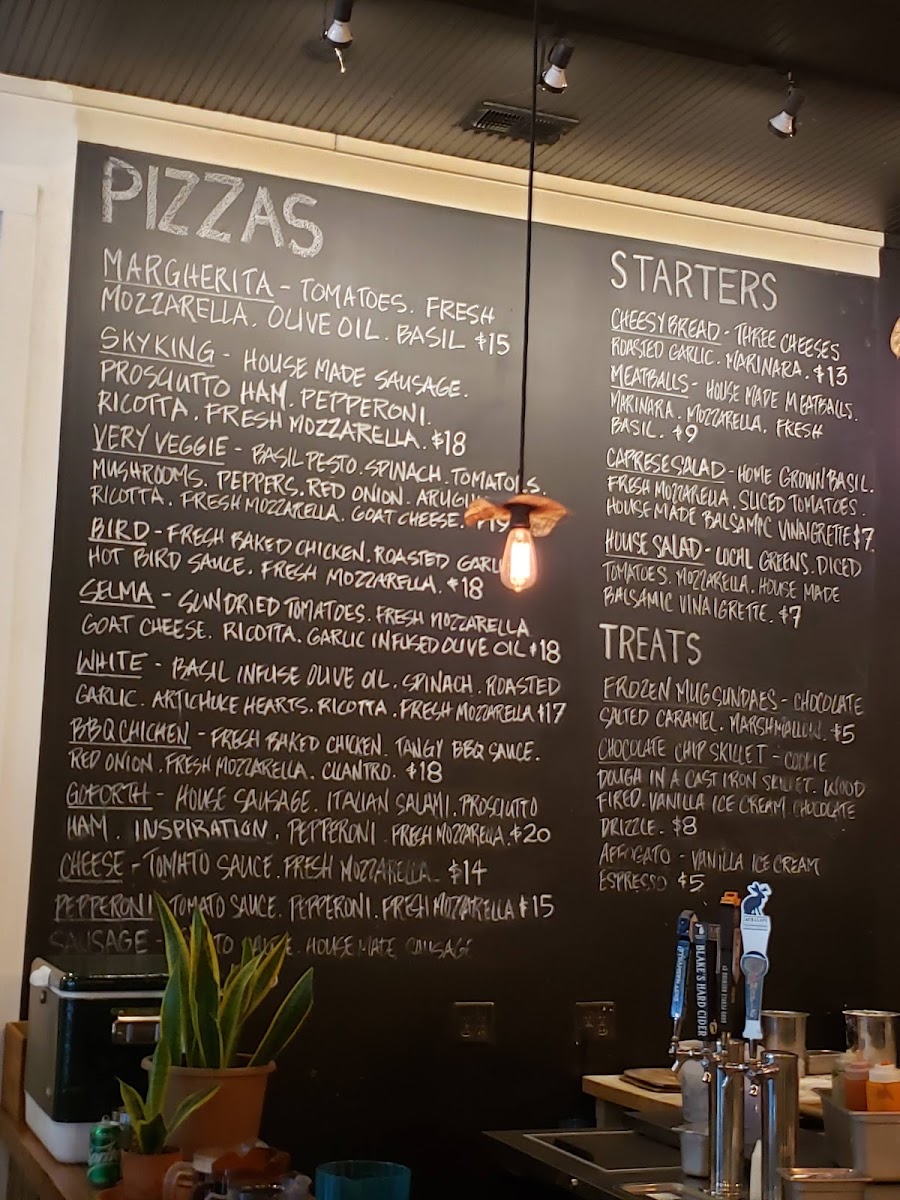 PIZZAS
MARGHERITA - TOMATOES. FRESH
MOZZARELLA. OLIVE OIL. BASIL $15
SKYKING - HOUSE MADE SAUSAGE.
PROSCIUTTO HAM. PEPPERONI.
RICOTTA. FRESH MOZZARELLA. $18
VERY VEGGIE - BASIL PESTO. SPINACH. TOMATOES.
MUSHROOMS. PEPPERS. RED ONION.
RICOTTA. FRESH MOZZARELLA. GOAT CHEESE.
BIRD - FRESH BAKED CHICKEN. ROASTED
HOT BIRD SAUCE. FRESH MOZZARELLA. $18
SELMA - SUNDRIED TOMATOES. FRESH MOZZARELLA
GOAT CHEESE. RICOTTA. GARLIC INFUSED OLIVE OIL $18
WHITE - BASIL INFUSE OLIVE OIL. SPINACH. ROASTED
GARLIC. ARTICHOKE HEARTS. RICOTTA. FRESH MOZZARELLA $17
BBQ CHICKEN - FRESH BAKED CHICKEN. TANGY BBQ SAUCE.
RED ONION. FRESH MOZZARELLA. CILANTRO. $18
GOFORTH - HOUSE SAUSAGE. ITALIAN SALAMI. PROSCIUTTO
HAM. INSPIRATION. PEPPERONI. FRESH MOZZARELLA. $20
CHEESE - TOMATO SAUCE. FRESH MOZZARELLA. $14
PEPPERONI TOMATO SAUCE. PEPPERONI. FRESH MOZZARELLA $15
SAUSAGE - HOUSE MADE SAUSAGE
STARTERS
CHEESY BREAD - THREE CHEESES
ROASTED GARLIC. MARINARA. $13
MEATBALLS - HOUSE MADE MEATBALLS.
MARINARA. MOZZARELLA. FRESH
BASIL. $9
CAPRESE SALAD - HOME GROWN BASIL.
FRESH MOZZARELLA. SLICED TOMATOES.
HOUSE MADE BALSAMIC VINAIGRETTE $7
HOUSE SALAD - LOCAL GREENS. DICED
TOMATOES. MOZZARELLA. HOUSE MADE
BALSAMIC VINAIGRETTE. $7
TREATS
FROZEN MUG SUNDAES - CHOCOLATE
SALTED CARAMEL. MARSHMALLOW. $5
CHOCOLATE CHIP SKILLET - COOKIE
DOUGH IN A CAST IRON SKILLET. WOOD
FIRED. VANILLA ICE CREAM CHOCOLATE
DRIZZLE. $8
AFFOGATO - VANILLA ICE CREAM
ESPRESSO $5
BLAKE'S HARD CIDER